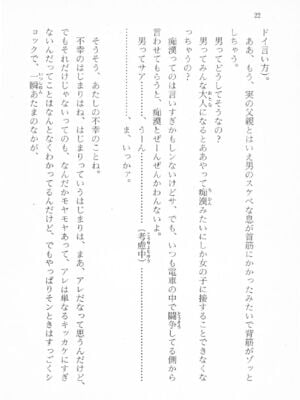 22
ドイ言い方)。
ああ、もう、実の父親とはいえ男のスケベな息が首筋にかかったみたいで背筋がゾッと
しちゃう。
男ってどうしてそうなの?
男ってみんな大人になるとああやって痴漢みたいにしか女の子に接することできなくな
っちゃうの?
痴漢ってのは言いすぎかもしンないけどサ、でも、いつも電車の中で闘争してる側から
言わせてもらうと、痴漢とぜーんぜんかわんないよ。
男ってサア……、うーん……………(考慮中)
…………ま、いっかァ。
そうそう、あたしの不幸のことね。
不幸のはじまりはね、はじまりっていうはじまりは、まあ、アレだなって思うんだけど、
でもそれだけじゃないってのも、なんだかモヤモヤあって、アレは単なるキッカケにすぎ
ないんだってことはなんとなくわかってるんだけど、でもやっぱりそンときはすっごくシ
ョックで、一瞬あたまのなかが、